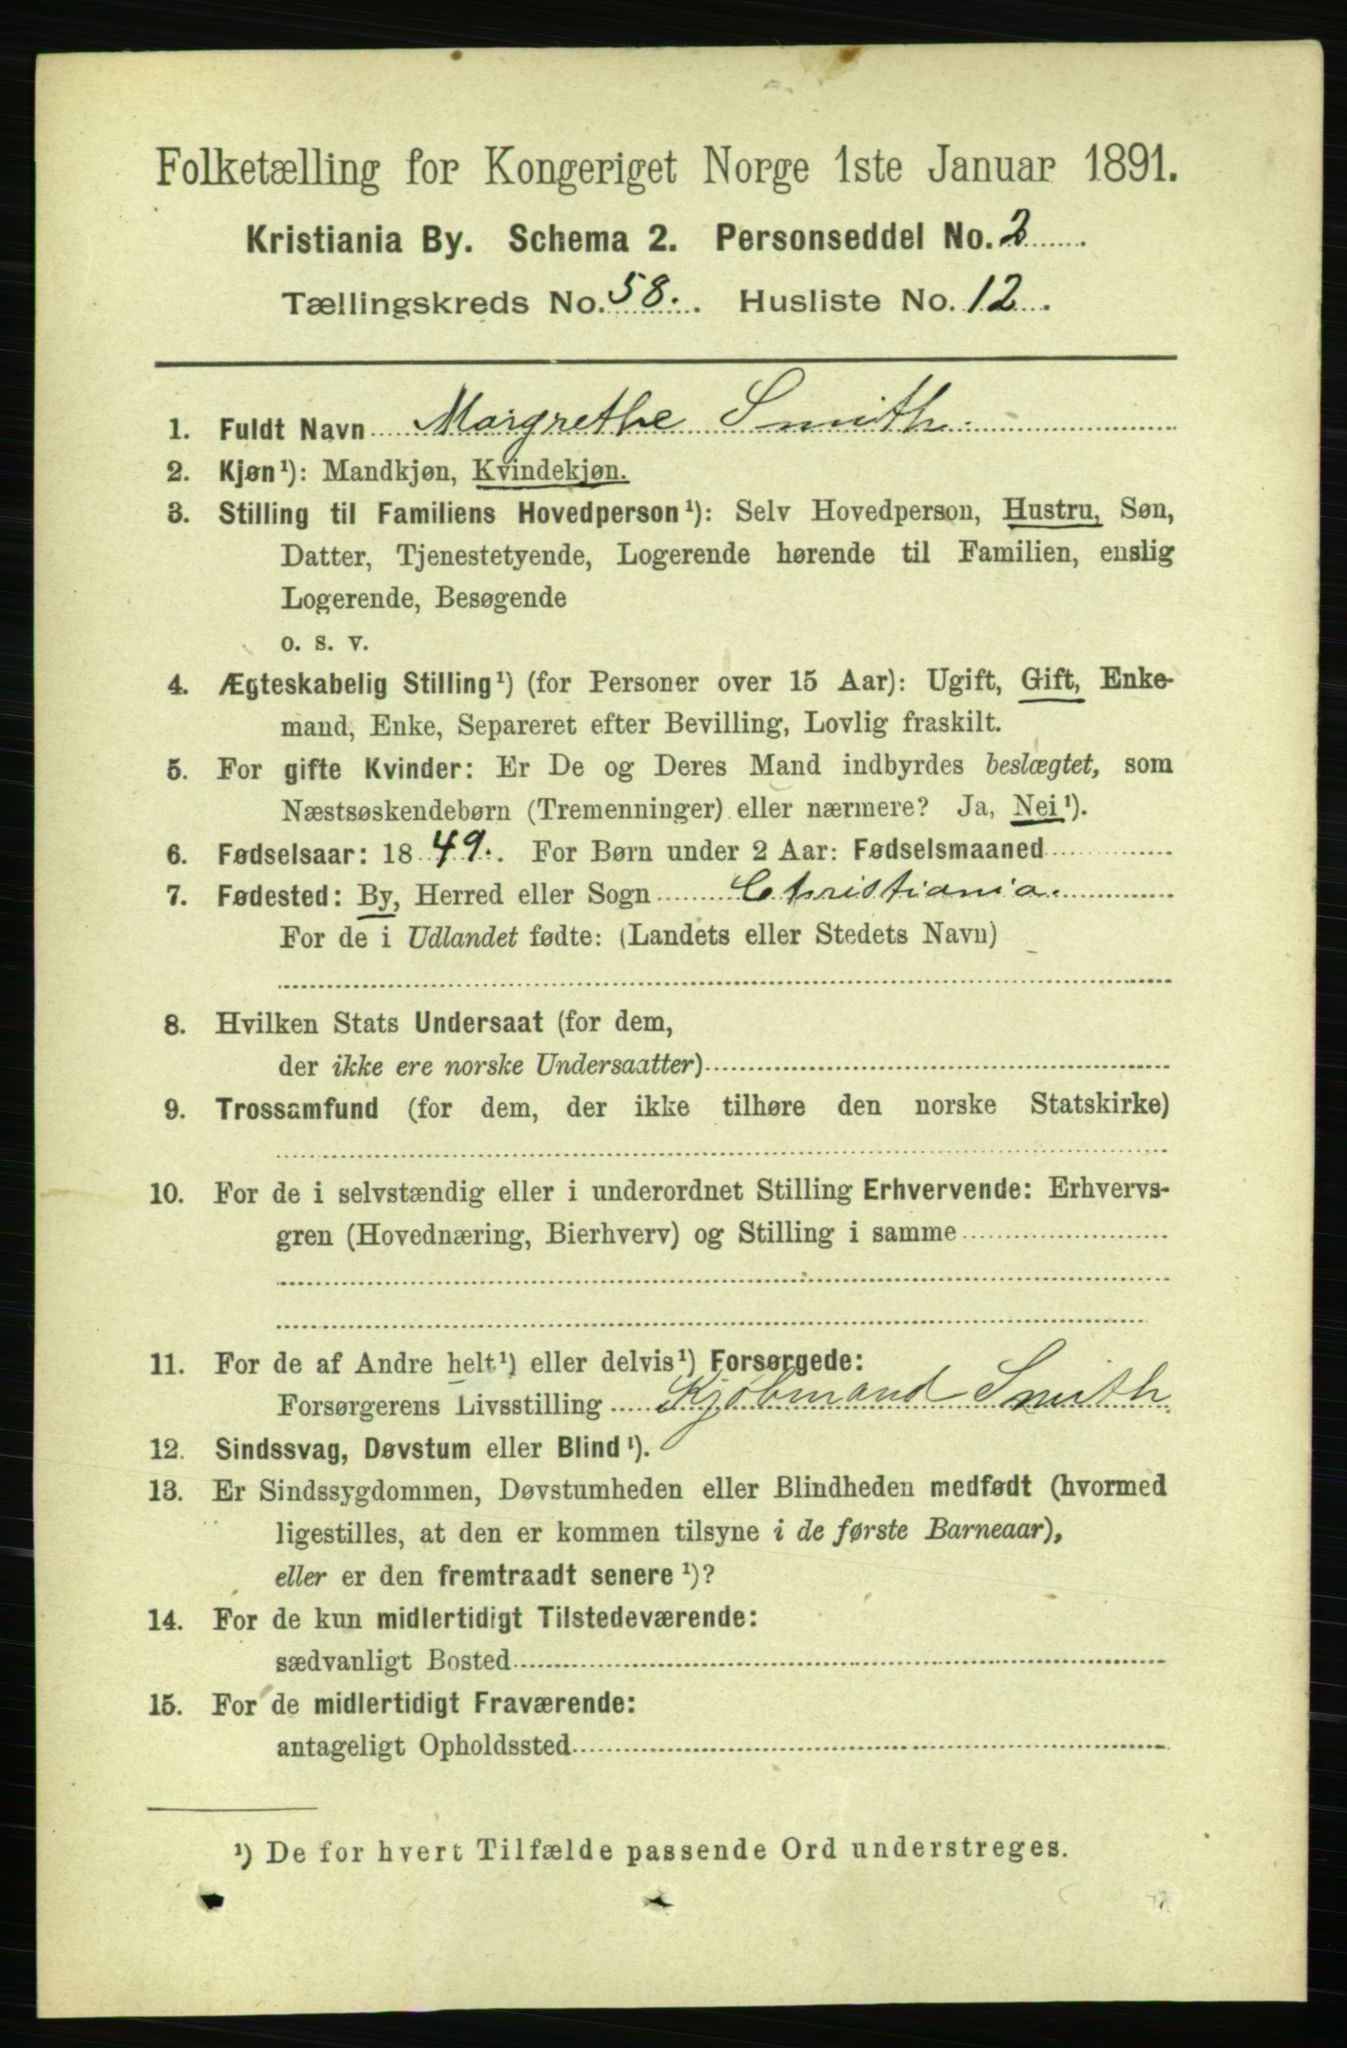 Folketælling for Kongeriget Norge 1ste Januar 1891.
Kristiania By. Schema 2. Personseddel No. 2
Tællingskreds No. 58. Husliste No. 12.
1. Fuldt Navn Margrethe Smith.
2. Kjøn¹): Mandkjøn, Kvindekjøn.
3. Stilling til Familiens Hovedperson¹): Selv Hovedperson, Hustru, Søn,
Datter, Tjenestetyende, Logerende hørende til Familien, enslig
Logerende, Besøgende
o. s. v.
4. Ægteskabelig Stilling¹) (for Personer over 15 Aar): Ugift, Gift, Enke-
mand, Enke, Separeret efter Bevilling, Lovlig fraskilt.
5. For gifte Kvinder: Er De og Deres Mand indbyrdes beslægtet, som
Næstsøskendebørn (Tremenninger) eller nærmere? Ja, Nei¹).
6. Fødselsaar: 1849. For Børn under 2 Aar: Fødselsmaaned
7. Fødested: By, Herred eller Sogn Christiania.
For de i Udlandet fødte: (Landets eller Stedets Navn)
8. Hvilken Stats Undersaat (for dem,
der ikke ere norske Undersaatter)
9. Trossamfund (for dem, der ikke tilhøre den norske Statskirke)
10. For de i selvstændig eller i underordnet Stilling Erhvervende: Erhvervs-
gren (Hovednæring, Bierhverv) og Stilling i samme
11. For de af Andre helt¹) eller delvis¹) Forsørgede:
Forsørgerens Livsstilling Kjøbmand Smith.
12. Sindssvag, Døvstum eller Blind¹).
13. Er Sindssygdommen, Døvstumheden eller Blindheden medfødt (hvormed
ligestilles, at den er kommen tilsyne i de første Barneaar),
eller er den fremtraadt senere¹)?
14. For de kun midlertidigt Tilstedeværende:
sædvanligt Bosted
15. For de midlertidigt Fraværende:
antageligt Opholdssted
¹) De for hvert Tilfælde passende Ord understreges.